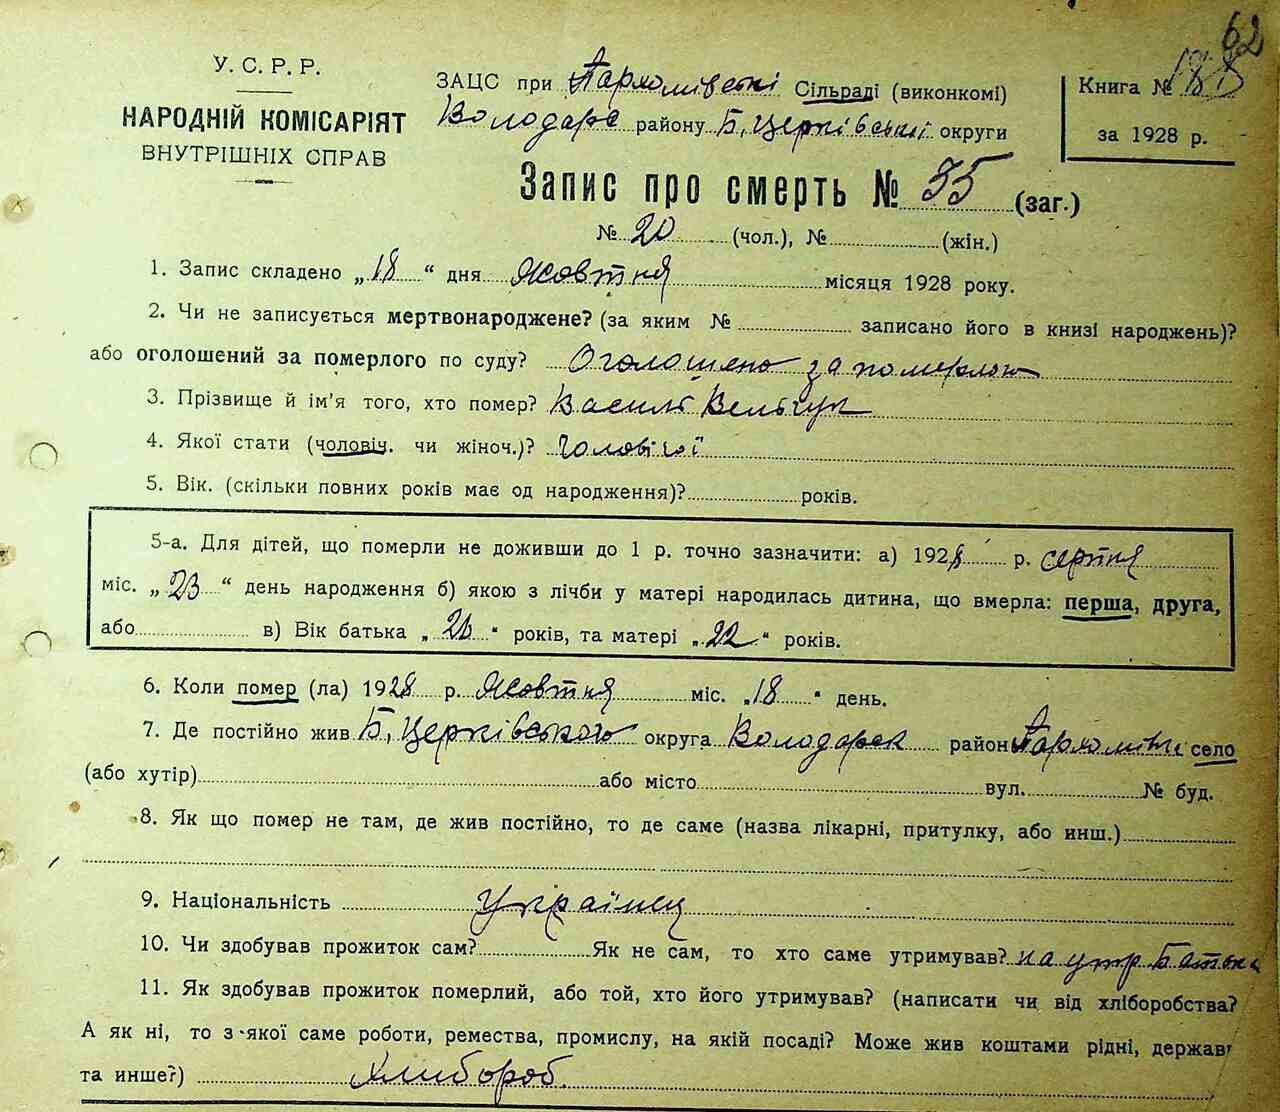 62
У. С. Р. Р.
НАРОДНІЙ КОМІСАРІЯТ
ВНУТРІШНІХ СПРАВ
ЗАЦС при Пархомівські Сільраді (виконкомі)
Володарс району Б, Церківської округи
Книга № 188
за 1928 р.
Запис про смерть № 35 (заг.)
№ 20 (чол.), № (жін.)
1. Запис складено „18“ дня Жовтня місяця 1928 року.
2. Чи не записується мертвонароджене? (за яким № записано його в книзі народжень)?
або оголошений за померлого по суду? Оголошено за померлою
3. Прізвище й ім'я того, хто помер? Василь Вельчук
4. Якої стати (чоловіч. чи жіноч.)? Чоловічої
5. Вік. (скільки повних років має од народження)? років.
5-а. Для дітей, що померли не доживши до 1 р. точно зазначити: а) 1928 р. серпня
міс. „23“ день народження б) якою з лічби у матері народилась дитина, що вмерла: перша, друга,
або в) Вік батька „26“ років, та матері „22“ років.
6. Коли помер (ла) 1928 р. Жовтня міс. „18“ день.
7. Де постійно жив Б, Церківського округа Володарск район Пархомівки село
(або хутір) або місто вул. № буд.
8. Як що помер не там, де жив постійно, то де саме (назва лікарні, притулку, або инш.)
9. Національність Українец
10. Чи здобував прожиток сам? Як не сам, то хто саме утримував? на утр Батька
11. Як здобував прожиток померлий, або той, хто його утримував? (написати чи від хліборобства?
А як ні, то з якої саме роботи, ремества, промислу, на якій посаді? Може жив коштами рідні, держави
та инше?) Хлибороб.